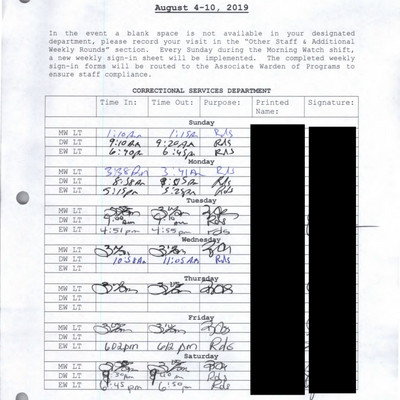 August 4-10, 2019
In the event a blank space is not available in your designated
department, please record your visit in the "Other Staff & Additional
Weekly Rounds" section. Every Sunday during the Morning Watch shift,
a new weekly sign-in sheet will be implemented. The completed weekly
sign-in forms will be routed to the Associate Warden of Programs to
ensure staff compliance.
CORRECTIONAL SERVICES DEPARTMENT
Time In: Time Out: Purpose: Printed Name: Signature:
Sunday
MW LT 1:10am 1:15am Rds
DW LT 9:10am 9:20am Rds
EW LT 6:40p 6:45p Rds
Monday
MW LT 3:38am 3:41am Rds
DW LT 8:58am Rds
EW LT 5:15pm 5:28pm Rds
Tuesday
MW LT
DW LT
EW LT 4:51pm 4:55pm Rds
Wednesday
MW LT
DW LT 10:58am 11:05am Rds
EW LT
Thursday
MW LT
DW LT
EW LT
Friday
MW LT
DW LT
EW LT 602pm 612pm Rds
Saturday
MW LT
DW LT Rds
EW LT 6:45pm 6:50pm Rds